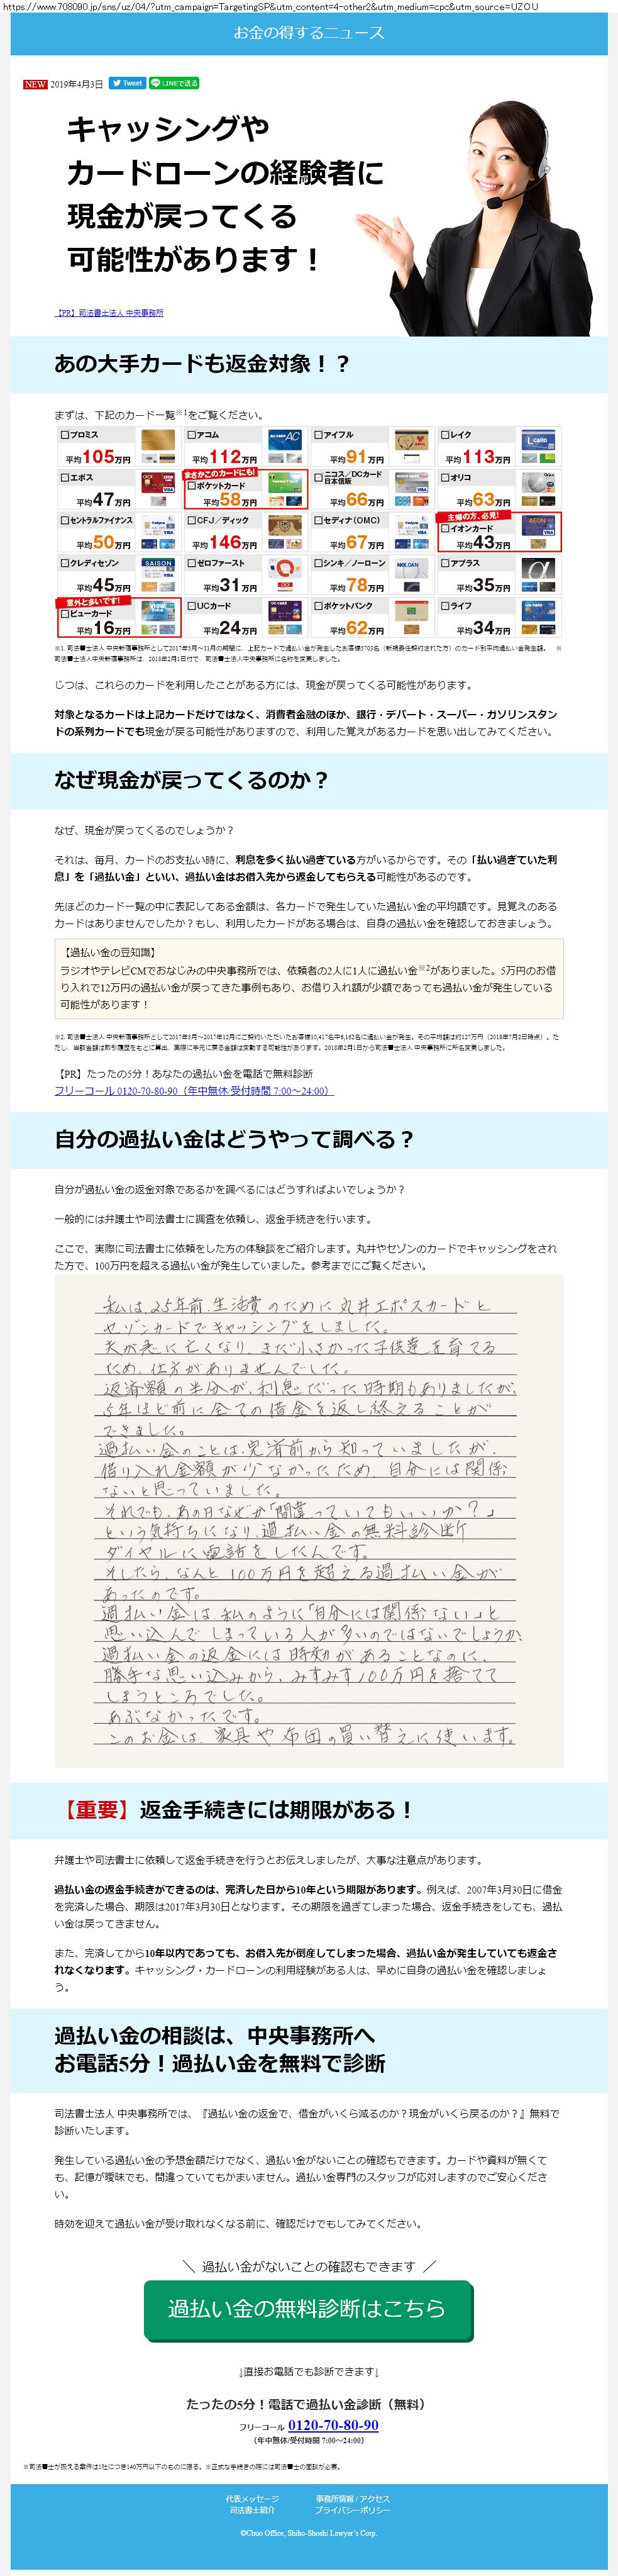 https://www.708090.jp/sns/uz/04/?utm_campaign=TargetingSP&utm_content=4-other2&utm_medium=cpc&utm_source=UZOU
お金の得するニュース
NEW 2019年4月3日 Tweet LINEで送る
キャッシングや
カードローンの経験者に
現金が戻ってくる
可能性があります！
【PR】司法書士法人 中央事務所
あの大手カードも返金対象！？
まずは、下記のカード一覧※1をご覧ください。
プロミス 平均105万円
アコム 平均112万円
アイフル 平均91万円
レイク 平均113万円
エポス 平均47万円
まさかこのカードにも!
ポケットカード 平均58万円
ニコス／DCカード 日本信販 平均66万円
オリコ 平均63万円
セントラルファイナンス 平均50万円
CFJ／ディック 平均146万円
セディナ（OMC） 平均67万円
主婦の方、必見!
イオンカード 平均43万円
クレディセゾン 平均45万円
ゼロファースト 平均31万円
シンキ／ノーローン 平均78万円
アプラス 平均35万円
意外と多いです!
ビューカード 平均16万円
UCカード 平均24万円
ポケットバンク 平均62万円
ライフ 平均34万円
※1. 司法■士法人 中央新宿事務所として2017年5月～11月の期間に、上記カードで過払い金が発生したお客様5703名（新規委任契約された方）のカード別平均過払い金発生額。 ※
司法■士法人中央新宿事務所は、2018年2月1日付で、司法■士法人中央事務所に名称を変更しました。
じつは、これらのカードを利用したことがある方には、現金が戻ってくる可能性があります。
対象となるカードは上記カードだけではなく、消費者金融のほか、銀行・デパート・スーパー・ガソリンスタン
ドの系列カードでも現金が戻る可能性がありますので、利用した覚えがあるカードを思い出してみてください。
なぜ現金が戻ってくるのか？
なぜ、現金が戻ってくるのでしょうか？
それは、毎月、カードのお支払い時に、利息を多く払い過ぎている方がいるからです。その「払い過ぎていた利
息」を「過払い金」といい、過払い金はお借入先から返金してもらえる可能性があるのです。
先ほどのカード一覧の中に表記してある金額は、各カードで発生していた過払い金の平均額です。見覚えのある
カードはありませんでしたか？もし、利用したカードがある場合は、自身の過払い金を確認しておきましょう。
【過払い金の豆知識】
ラジオやテレビCMでおなじみの中央事務所では、依頼者の2人に1人に過払い金※2がありました。5万円のお借
り入れで12万円の過払い金が戻ってきた事例もあり、お借り入れ額が少額であっても過払い金が発生している
可能性があります！
※2. 司法■士法人 中央新宿事務所として2017年5月～2017年12月にご契約いただいたお客様10,417名中6,162名に過払い金が発生。その平均額は約127万円（2018年7月2日時点）。た
だし、当該金額は取引履歴をもとに算出、実際に手元に戻る金額は変動する可能性があります。2018年2月1日から司法■士法人 中央事務所に所名変更しました。
【PR】たったの5分！あなたの過払い金を電話で無料診断
フリーコール 0120-70-80-90（年中無休/受付時間 7:00～24:00）
自分の過払い金はどうやって調べる？
自分が過払い金の返金対象であるかを調べるにはどうすればよいでしょうか？
一般的には弁護士や司法書士に調査を依頼し、返金手続きを行います。
ここで、実際に司法書士に依頼をした方の体験談をご紹介します。丸井やセゾンのカードでキャッシングをされ
た方で、100万円を超える過払い金が発生していました。参考までにご覧ください。
私は、25年前、生活費のために丸井エポスカードと
セゾンカードでキャッシングをしました。
夫が急に亡くなり、まだ小さかった子供達を育てる
ため、仕方がありませんでした。
返済額の半分が、利息だった時期もありましたが、
5年ほど前に全ての借金を返し終えることが
できました。
過払い金のことは、完済前から知っていましたが、
借り入れ金額が少なかったため、自分には関係
ないと思っていました。
それでも、あの日なぜか「間違っていてもいいか？」
という気持ちになり、過払い金の無料診断
ダイヤルに電話をしたんです。
そしたら、なんと100万円を超える過払い金が
あったのです。
過払い金は、私のように「自分には関係ない」と
思い込んでしまっている人が多いのではないでしょうか。
過払い金の返金には時効があることなのに、
勝手な思い込みから、みすみす100万円を捨てて
しまうところでした。
あぶなかったです。
このお金は、家具や布団の買い替えに使います。
【重要】返金手続きには期限がある！
弁護士や司法書士に依頼して返金手続きを行うとお伝えしましたが、大事な注意点があります。
過払い金の返金手続きができるのは、完済した日から10年という期限があります。例えば、2007年3月30日に借金
を完済した場合、期限は2017年3月30日となります。その期限を過ぎてしまった場合、返金手続きをしても、過払
い金は戻ってきません。
また、完済してから10年以内であっても、お借入先が倒産してしまった場合、過払い金が発生していても返金さ
れなくなります。キャッシング・カードローンの利用経験がある人は、早めに自身の過払い金を確認しましょ
う。
過払い金の相談は、中央事務所へ
お電話5分！過払い金を無料で診断
司法書士法人 中央事務所では、『過払い金の返金で、借金がいくら減るのか？現金がいくら戻るのか？』無料で
診断いたします。
発生している過払い金の予想金額だけでなく、過払い金がないことの確認もできます。カードや資料が無くて
も、記憶が曖昧でも、間違っていてもかまいません。過払い金専門のスタッフが応対しますのでご安心くださ
い。
時効を迎えて過払い金が受け取れなくなる前に、確認だけでもしてみてください。
＼ 過払い金がないことの確認もできます ／
過払い金の無料診断はこちら
↓直接お電話でも診断できます↓
たったの5分！電話で過払い金診断（無料）
フリーコール 0120-70-80-90
（年中無休/受付時間 7:00～24:00）
※司法■士が扱える案件は1社につき140万円以下のものに限る。※正式な手続きの際には司法■士の面談が必要。
代表メッセージ 事務所情報 / アクセス
司法書士紹介 プライバシーポリシー
©Chuo Office, Shiho-Shoshi Lawyer's Corp.